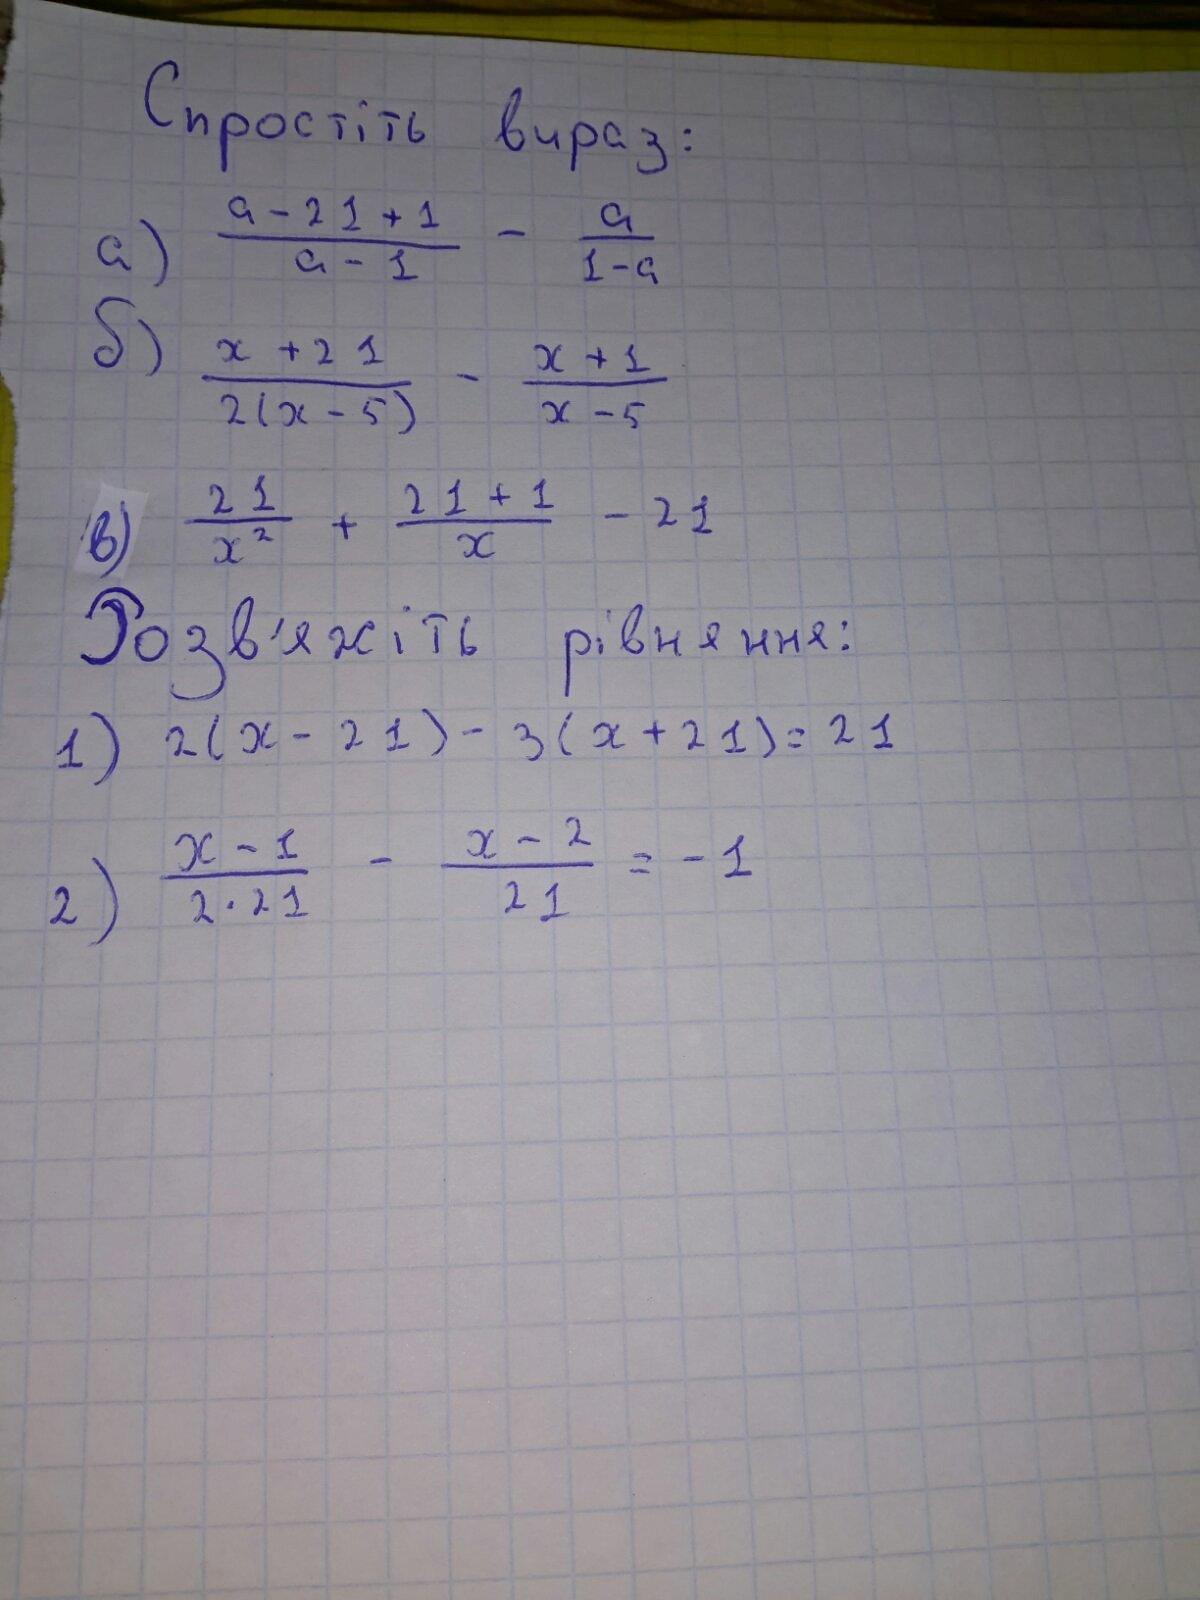 Спростіть вираз:
а) (a - 21 + 1)/(a - 1) - a/(1 - a)
б) (x + 21)/(2(x - 5)) - (x + 1)/(x - 5)
в) 21/x² + (21 + 1)/x - 21
Розв'яжіть рівняння:
1) 2(x - 21) - 3(x + 21) = 21
2) (x - 1)/(2·21) - (x - 2)/21 = -1